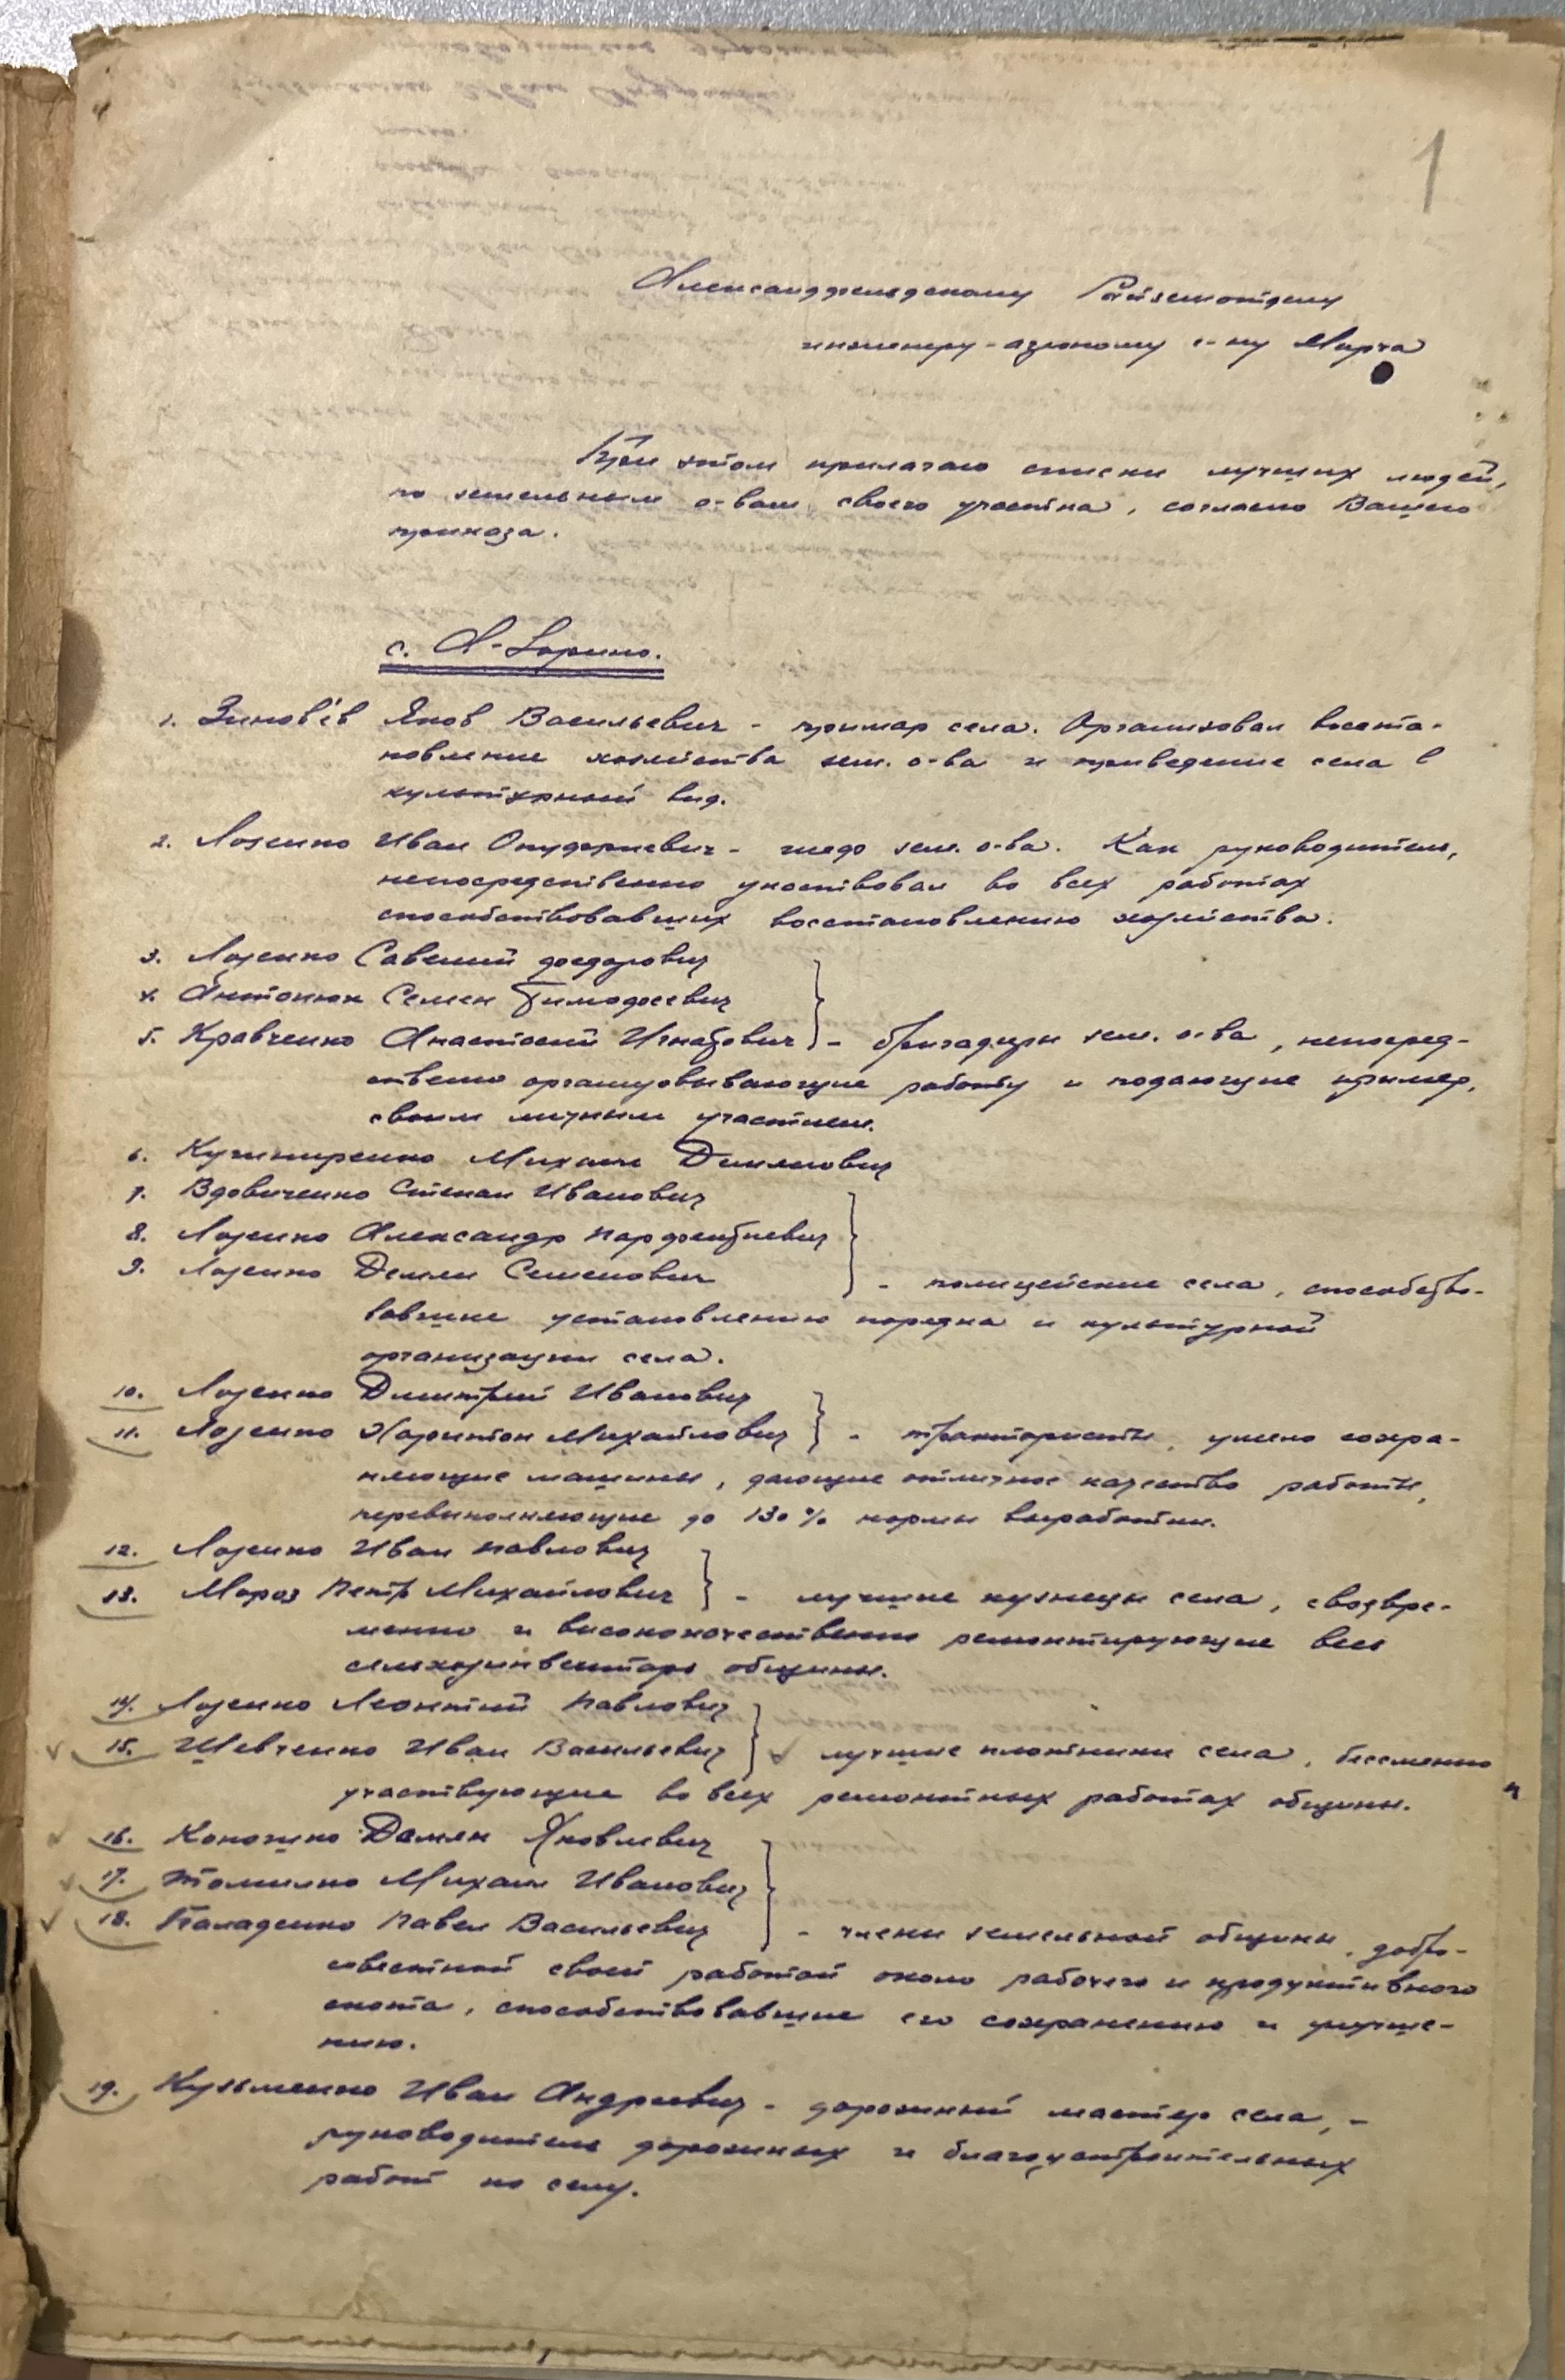 1
Александрфельдскому Райземотделу
инженеру-агроному г-ну Мирча
При этом прилагаю списки лучших людей,
по земельным о-вам своего участка, согласно Вашего
приказа.
с. А-Дарино.
1. Зиновьев Яков Васильевич - примар села. Организовал восста-
новление хозяйства зем. о-ва и приведение села в
культурный вид.
2. Лозенко Иван Онуфриевич - шеф зем. о-ва. Как руководитель,
непосредственно участвовал во всех работах
способствовавших восстановлению хозяйства.
3. Лозенко Савелий Федорович
4. Антонюк Семен Тимофеевич
5. Кравченко Анастасий Игнатович - бригадиры зем. о-ва, непосред-
ственно организовывающие работу и подающие пример,
своим личным участием.
6. Кушниренко Михаил Демьянович
7. Вдовиченко Степан Иванович
8. Лозенко Александр Парфентиевич
9. Лозенко Демьян Семенович - полицейские села, способство-
вавшие установлению порядка и культурной
организации села.
10. Лозенко Димитрий Иванович
11. Лозенко Харитон Михайлович - трактористы, умело сохра-
няющие машины, дающие отличное качество работы,
перевыполняющие до 130% нормы выработки.
12. Лозенко Иван Павлович
13. Мороз Петр Михайлович - лучшие кузнецы села, своевре-
менно и высококачественно ремонтирующие весь
сельхозинвентарь общины.
14. Лозенко Леонтий Павлович
15. Шевченко Иван Васильевич лучшие плотники села, бессменно
участвующие во всех ремонтных работах общины.
16. Демьян Яковлевич
17. Томилко Михаил Иванович
18. Паладенко Павел Васильевич - члены земельной общины, добро-
совестной своей работой около рабочего и продуктивного
скота, способствовавшие его сохранению и улучше-
нию.
19. Кузьменко Иван Андреевич - дорожный мастер села, -
руководитель дорожных и благоустроительных
работ по селу.